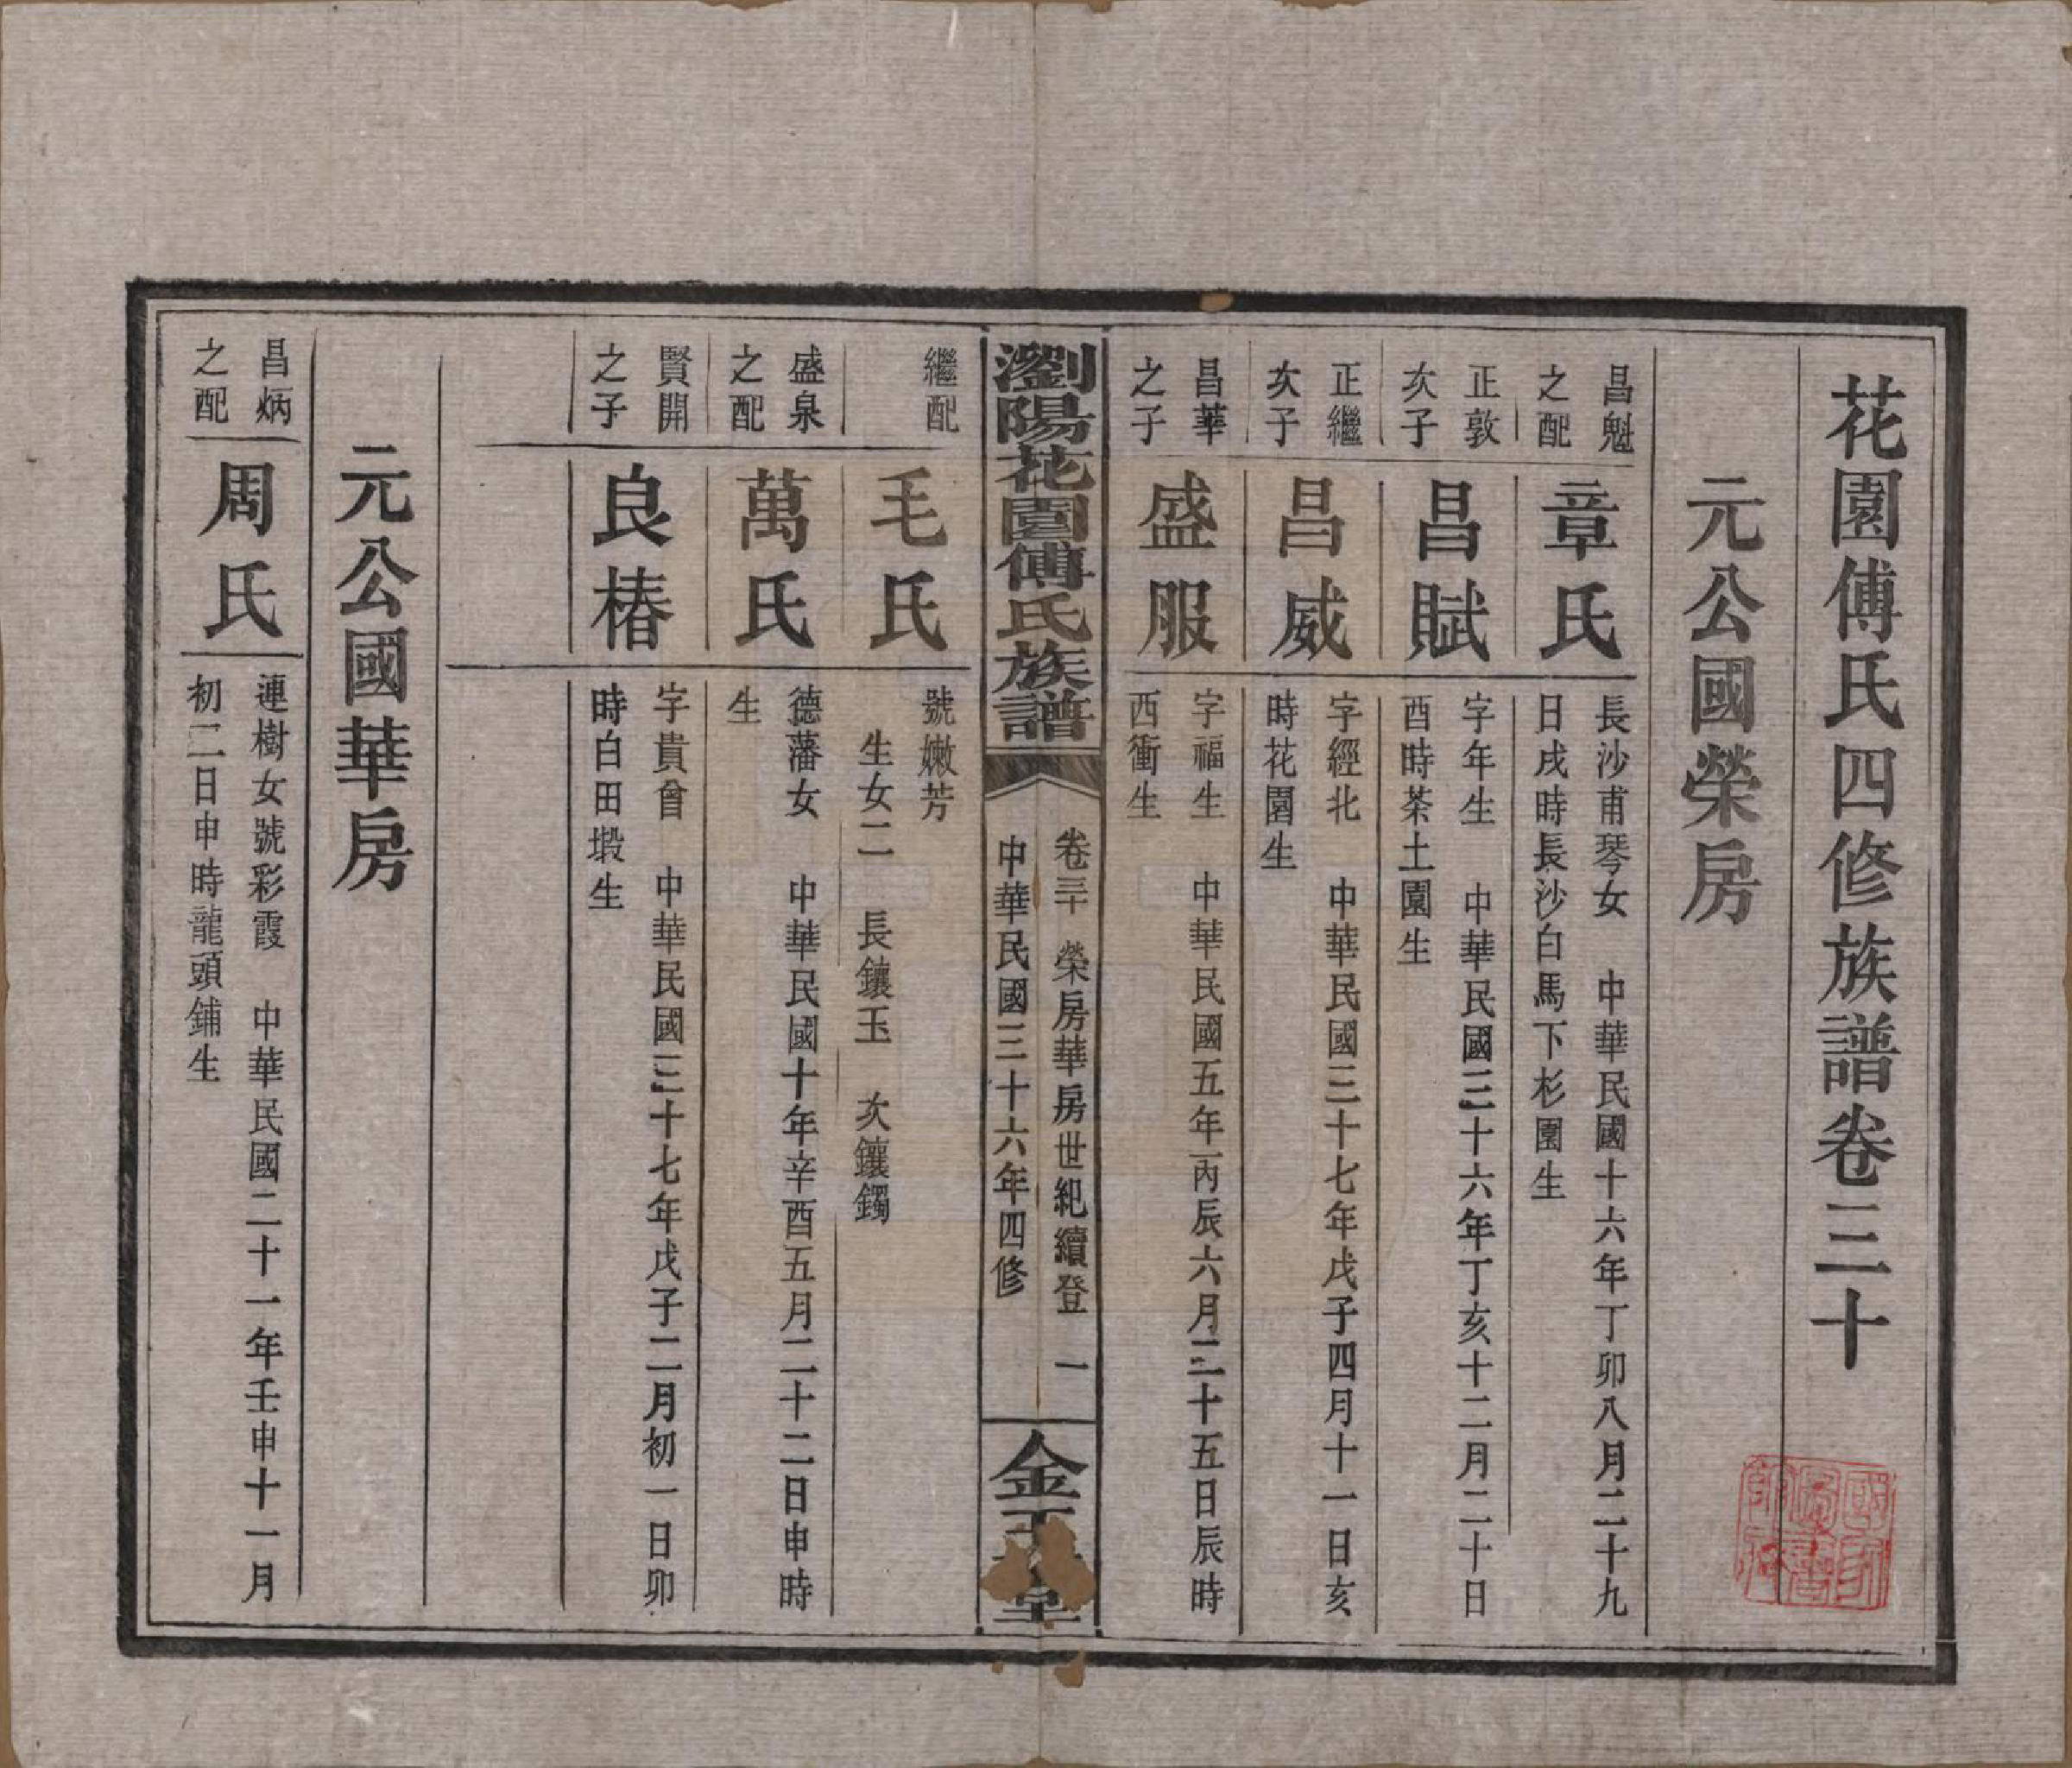 花園傅氏四修族譜卷三十
元公國榮房
昌魁
之配
章氏
長沙甫琴女　中華民國十六年丁卯八月二十九
日戌時長沙白馬下杉園生
正敦
次子
昌賦
字年生　中華民國三十六年丁亥十二月二十日
酉時茶土園生
正繼
次子
昌威
字經北　中華民國三十七年戊子四月十一日亥
時花園生
昌華
之子
盛服
字福生　中華民國五年丙辰六月二十五日辰時
西衝生
瀏陽花園傅氏族譜
卷三十　榮房華房世紀續登　一
中華民國三十六年四修
金玉堂
繼配
毛氏
號嫩芳
生女二　長鑲玉　次鑲鐲
盛泉
之配
萬氏
德藩女　中華民國十年辛酉五月二十二日申時
生
賢開
之子
良椿
字貴曾　中華民國三十七年戊子二月初一日卯
時白田塅生
元公國華房
昌炳
之配
周氏
連樹女號彩霞　中華民國二十一年壬申十一月
初二日申時龍頭鋪生